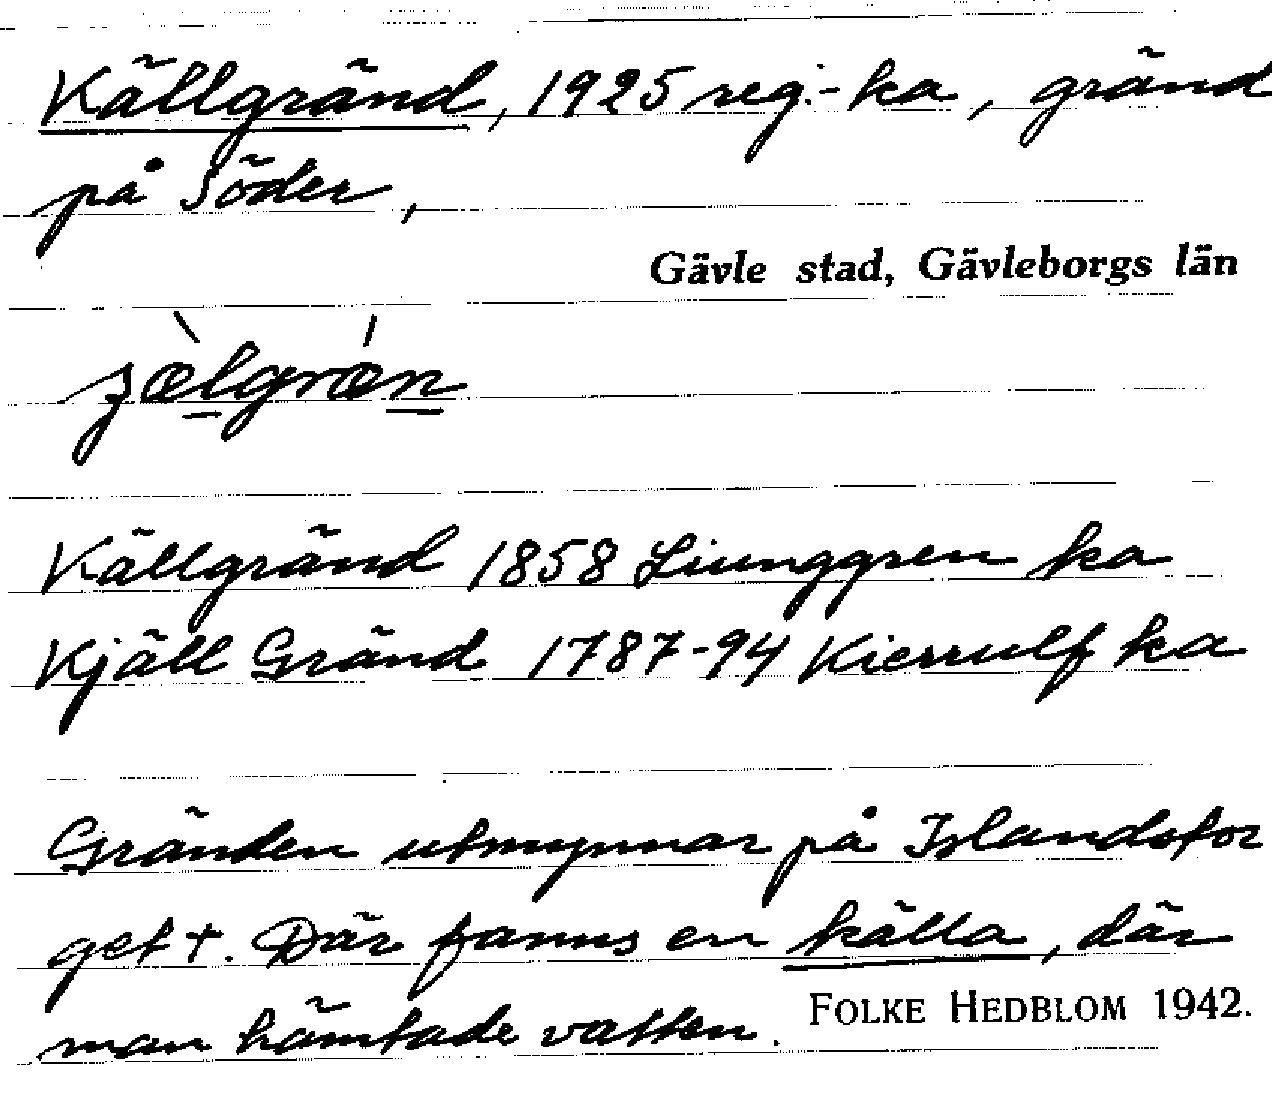 Källgränd, 1925 reg.-ka, gränd
på Söder,
Gävle stad, Gävleborgs län
Källgränd 1858 Liunggren ka
Kjäll Gränd 1787-94 Kierrulf ka
Gränden utmynnar på Islandstor
get +. Där fanns en källa, där
man hämtade vatten.
FOLKE HEDBLOM 1942.